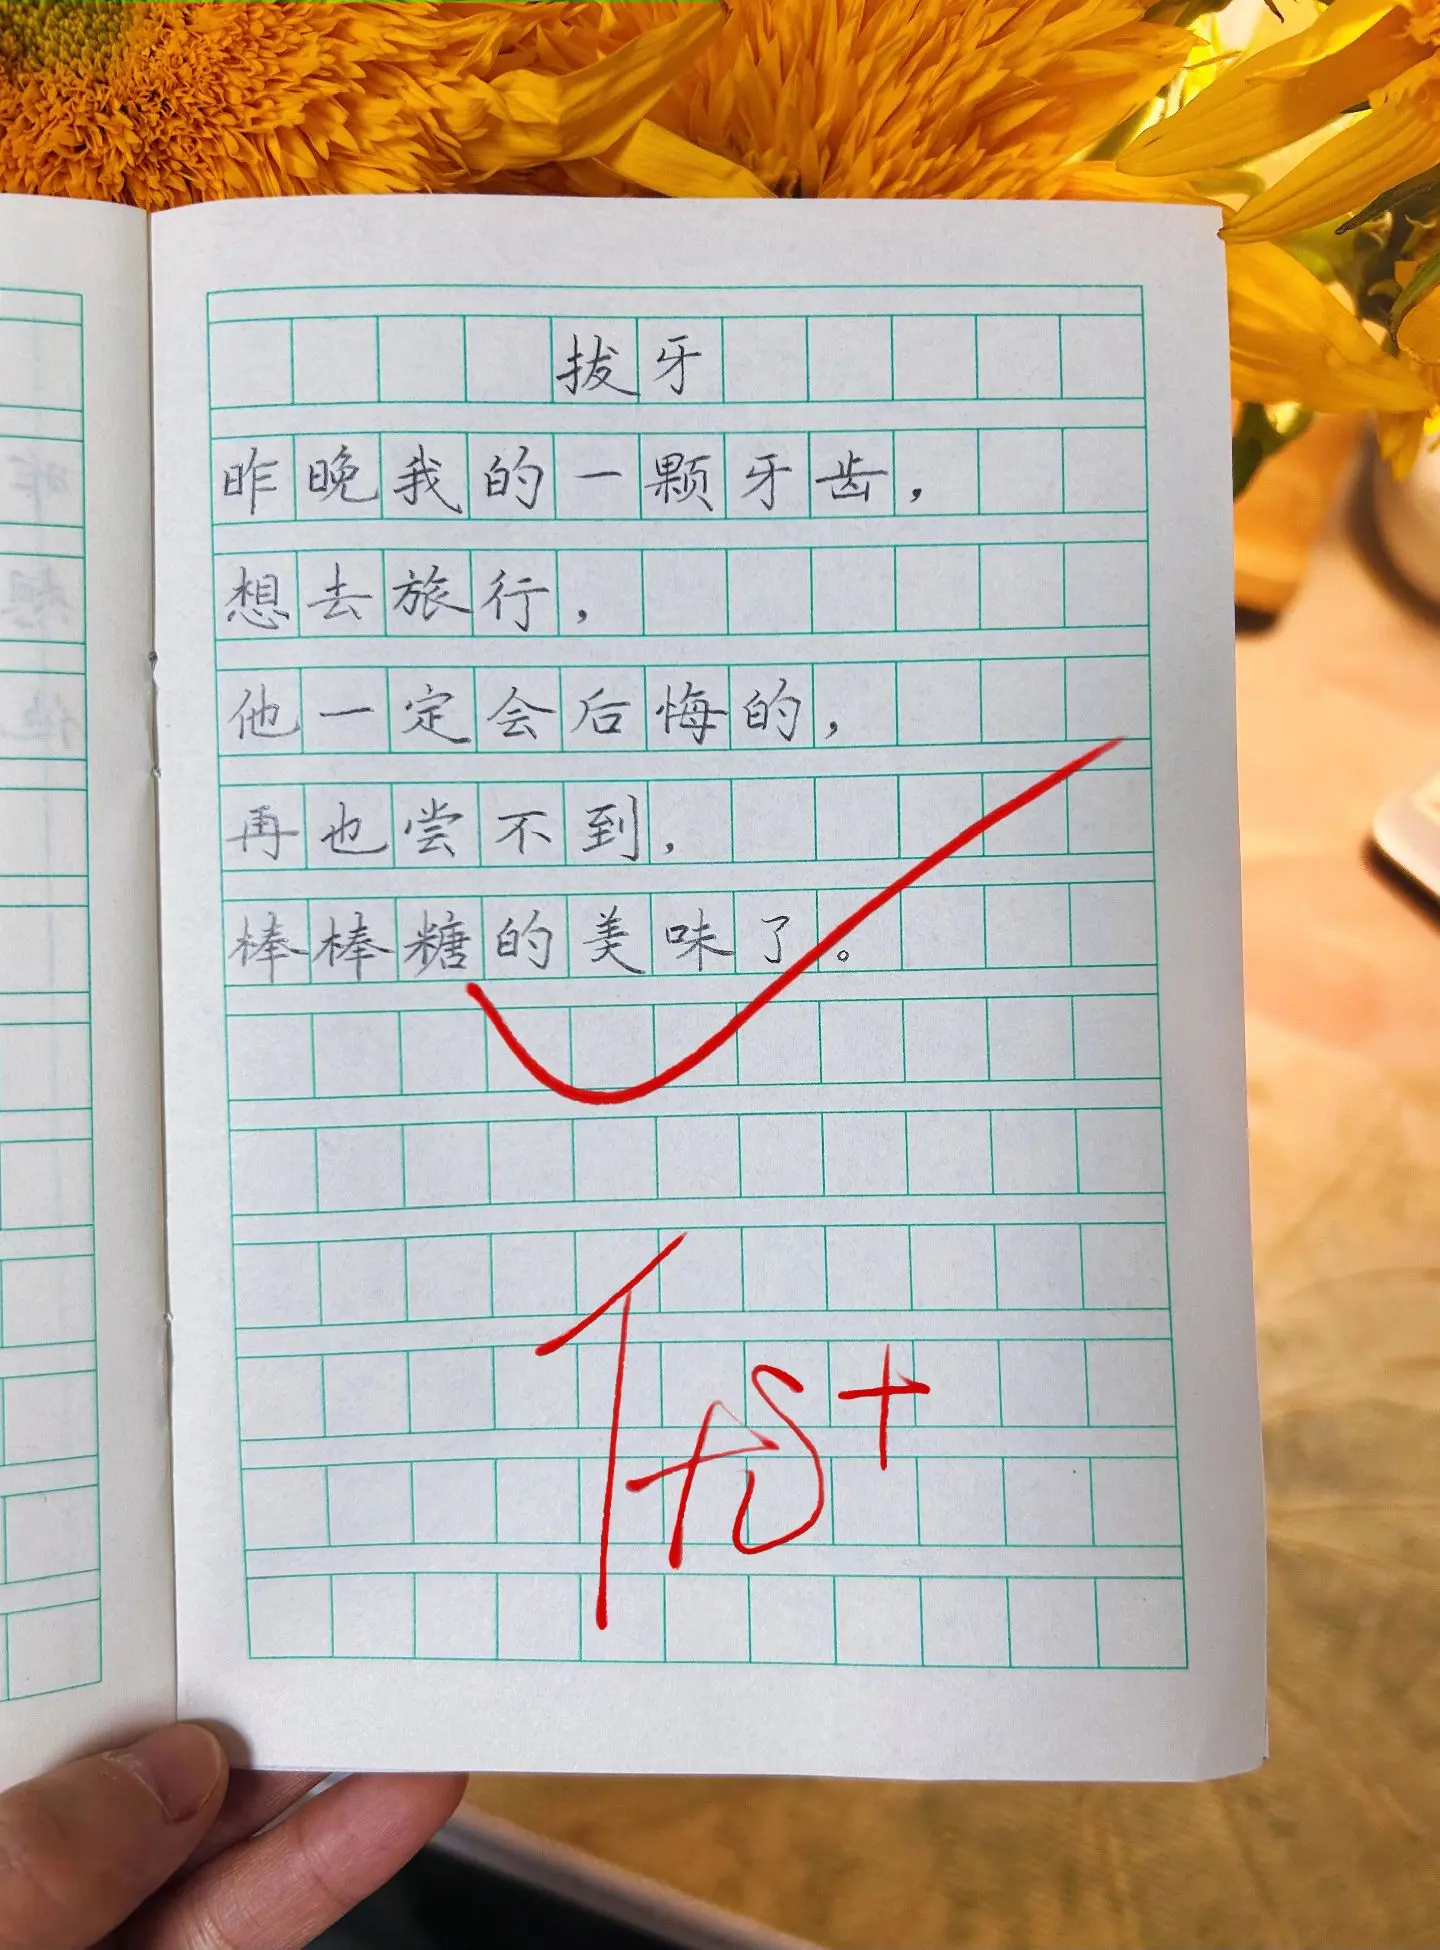 拔牙
昨晚我的一颗牙齿，
想去旅行，
他一定会后悔的，
再也尝不到，
棒棒糖的美味了。